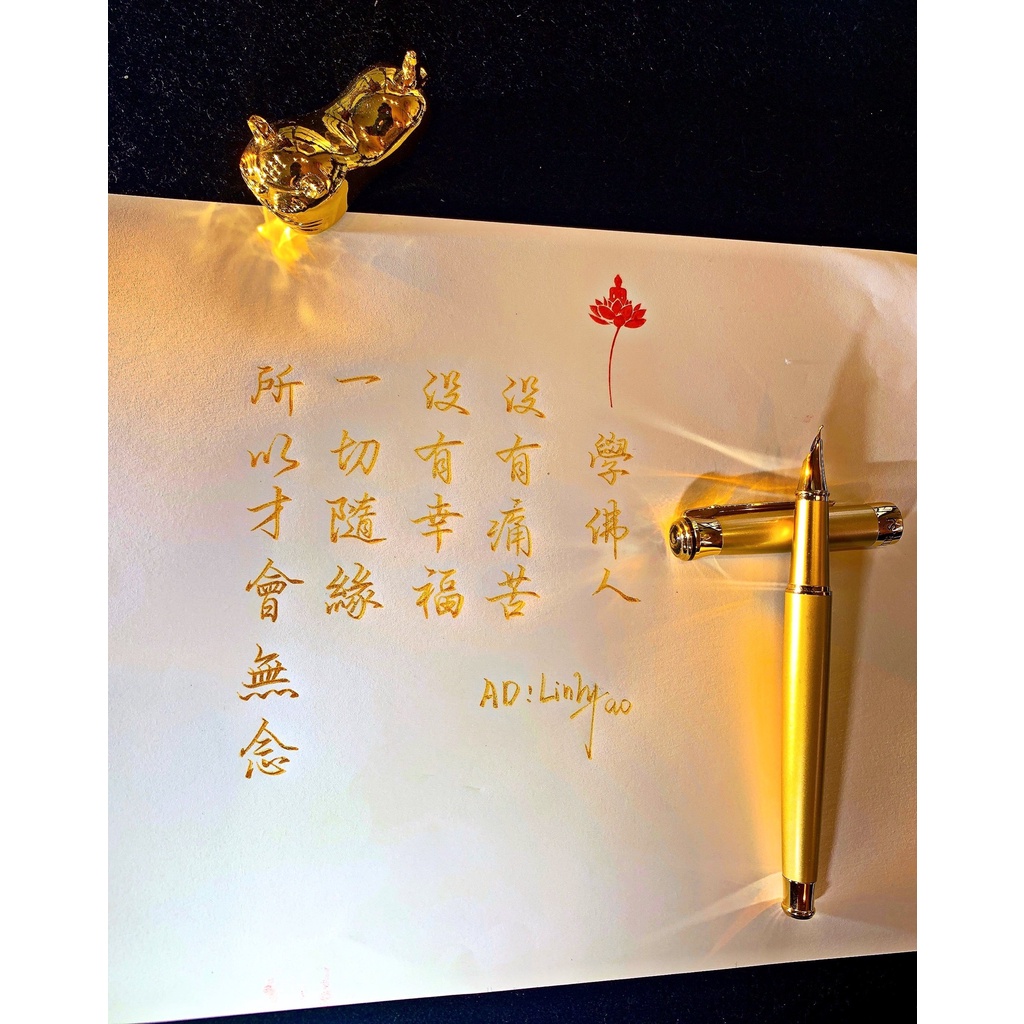 學佛人
没有痛苦
没有幸福
一切隨緣
所以才會無念
AD:Linhyao